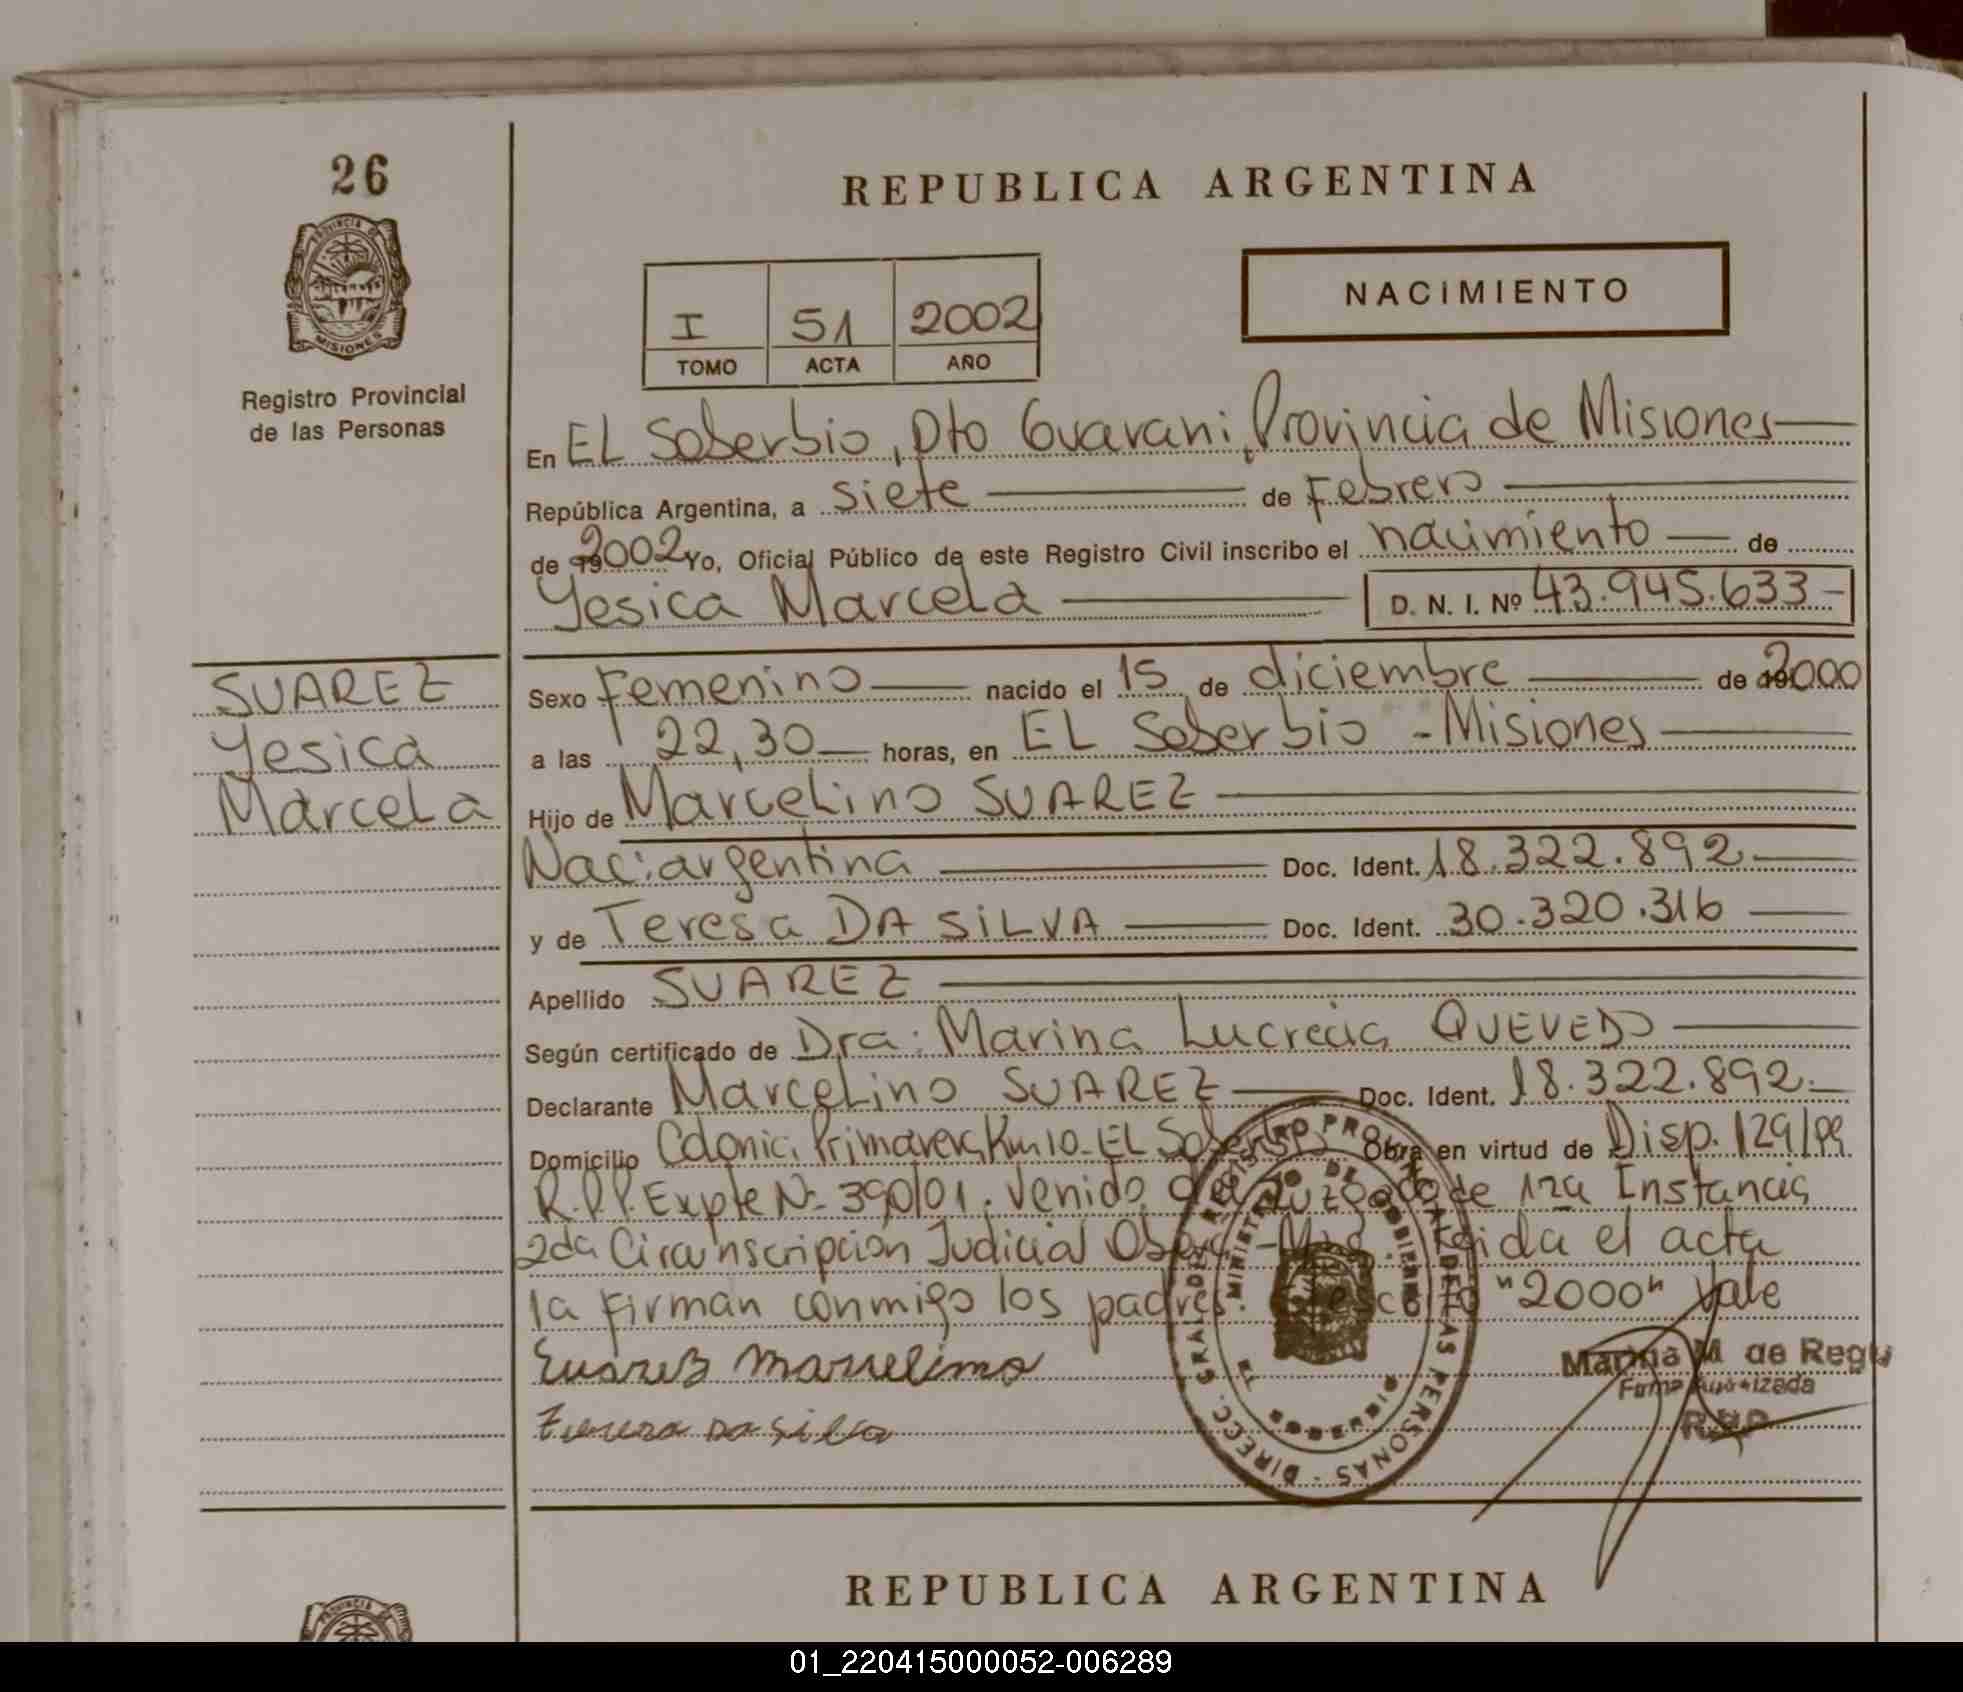 26
REPUBLICA ARGENTINA
PROVINCIA DE
MISIONES
Registro Provincial
de las Personas
I 51 2002
TOMO ACTA AÑO
NACIMIENTO
En EL Soberbio, Dto Guarani, Provincia de Misiones
República Argentina, a siete de Febrero
de 2002 Yo, Oficial Público de este Registro Civil inscribo el nacimiento de
Yesica Marcela D. N. I. Nº 43.945.633-
SUAREZ
Yesica
Marcela
Sexo Femenino nacido el 15 de diciembre de 2000
a las 22,30 horas, en EL Soberbio - Misiones
Hijo de Marcelino SUAREZ
Nac: argentina Doc. Ident. 18.322.892
y de Teresa DA SiLVA Doc. Ident. 30.320.316
Apellido SUAREZ
Según certificado de Dra: Marina Lucrecia QUEVEDO
Declarante Marcelino SUAREZ Doc. Ident. 18.322.892.
Domicilio Colonia Primavera Km 10 - EL Soberbio Obra en virtud de Disp. 129/99
R.P.P. Expte Nº 390/01. Venido del Juzgado de 1ra Instancia
2da Circunscripcion Judicial Oberá - Mnes. Leida el acta
la firman conmigo los padres. "2000" Vale
Suarez Marcelino
Teresa Da Silva
DIRECC. GRAL. DEL REGISTRO PROVINCIAL DE LAS PERSONAS
MINISTERIO DE GOBIERNO
MISIONES
Marina M de Regu
Firma Autorizada
R.P.P
REPUBLICA ARGENTINA
PROVINCIA DE
01_220415000052-006289